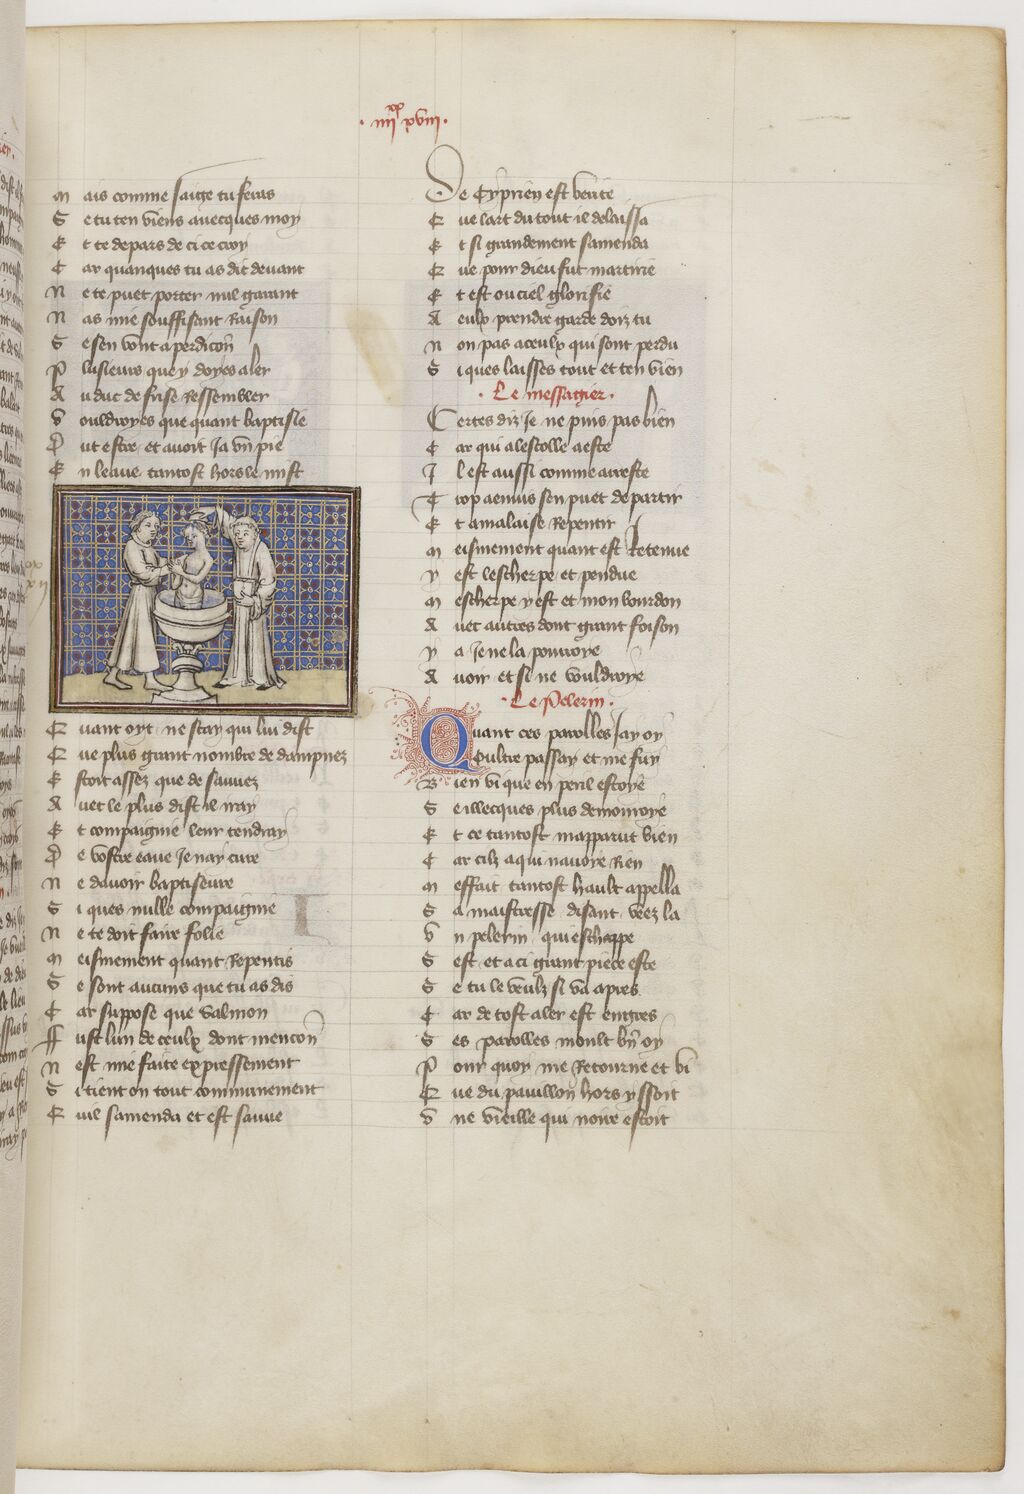 .iiii xx xviii.
Mais comme saige tu feras
Se tu ten viens avecques moy
Et te depars de ci ce croy
Car quanques tu as dit devant
Ne te puet porter nul garant
Nas mie souffisant Raison
Se sen vont a perdicon
Plusieurs que y doyes aler
Au duc de frise Ressembler
Vouldroyes que quant baptisie
Dut estre et avoit Ja vn pie
En leaue tantost hors le mist
Quant oyt ne scay qui lui dist
Que plus grant nombre de dampnez
Estoit assez que de sauvez
Avec le plus dist il nray
Et compaignie leur tendray
De vostre eaue Je nay cure
Ne davoir baptiseure
Si ques nulle compaignie
Ne te doit faire folie
Meismement quant Repentis
Se sont aucuns que tu as dis
Car suppose que Salmon
Fust lun de ceulx dont mencon
Nest mie faite expressement
Si tient on tout communement
Quil samenda et est sauve
De Cyprien est verite
Que lart du tout il delaissa
Et si grandement samenda
Que pour dieu fut martirie
Et est ou ciel glorifie
A eulx prendre garde doiz tu
Non pas a ceulx qui sont perdu
Si ques laisses tout et ten vien
.Le messagier.
Certes diz Je ne puis pas bien
Car qui a lescolle a este
Il est aussi comme arreste
Trop a enuis sen puet departir
Et a malaise Repentir
Meismement quant est Retenue
Y est lescherpe et pendue
Mescherpe y est et mon bourdon
Avec autres dont grant foison
Y a Je ne la pourroye
Avoir et si ne vouldroye
.Le Pelerin.
Quant ces parolles Jay oy
Oultre passay et me fuy
Bien vi que en peril estoye
Se illecques plus demouroye
Et ce tantost mapparut bien
Car cilz a qui navoye Rien
Meffait tantost hault appella
Sa maistresse disant veez la
Vn pelerin qui eschappe
Sest et a ci grant piece este
Se tu le veulz si va apres
Car de tost aler est engres
Ses parolles moult bn oy
Pour quoy me Retourne et vi
Que du pavillon hors yssoit
Vne vieille qui noire estoit